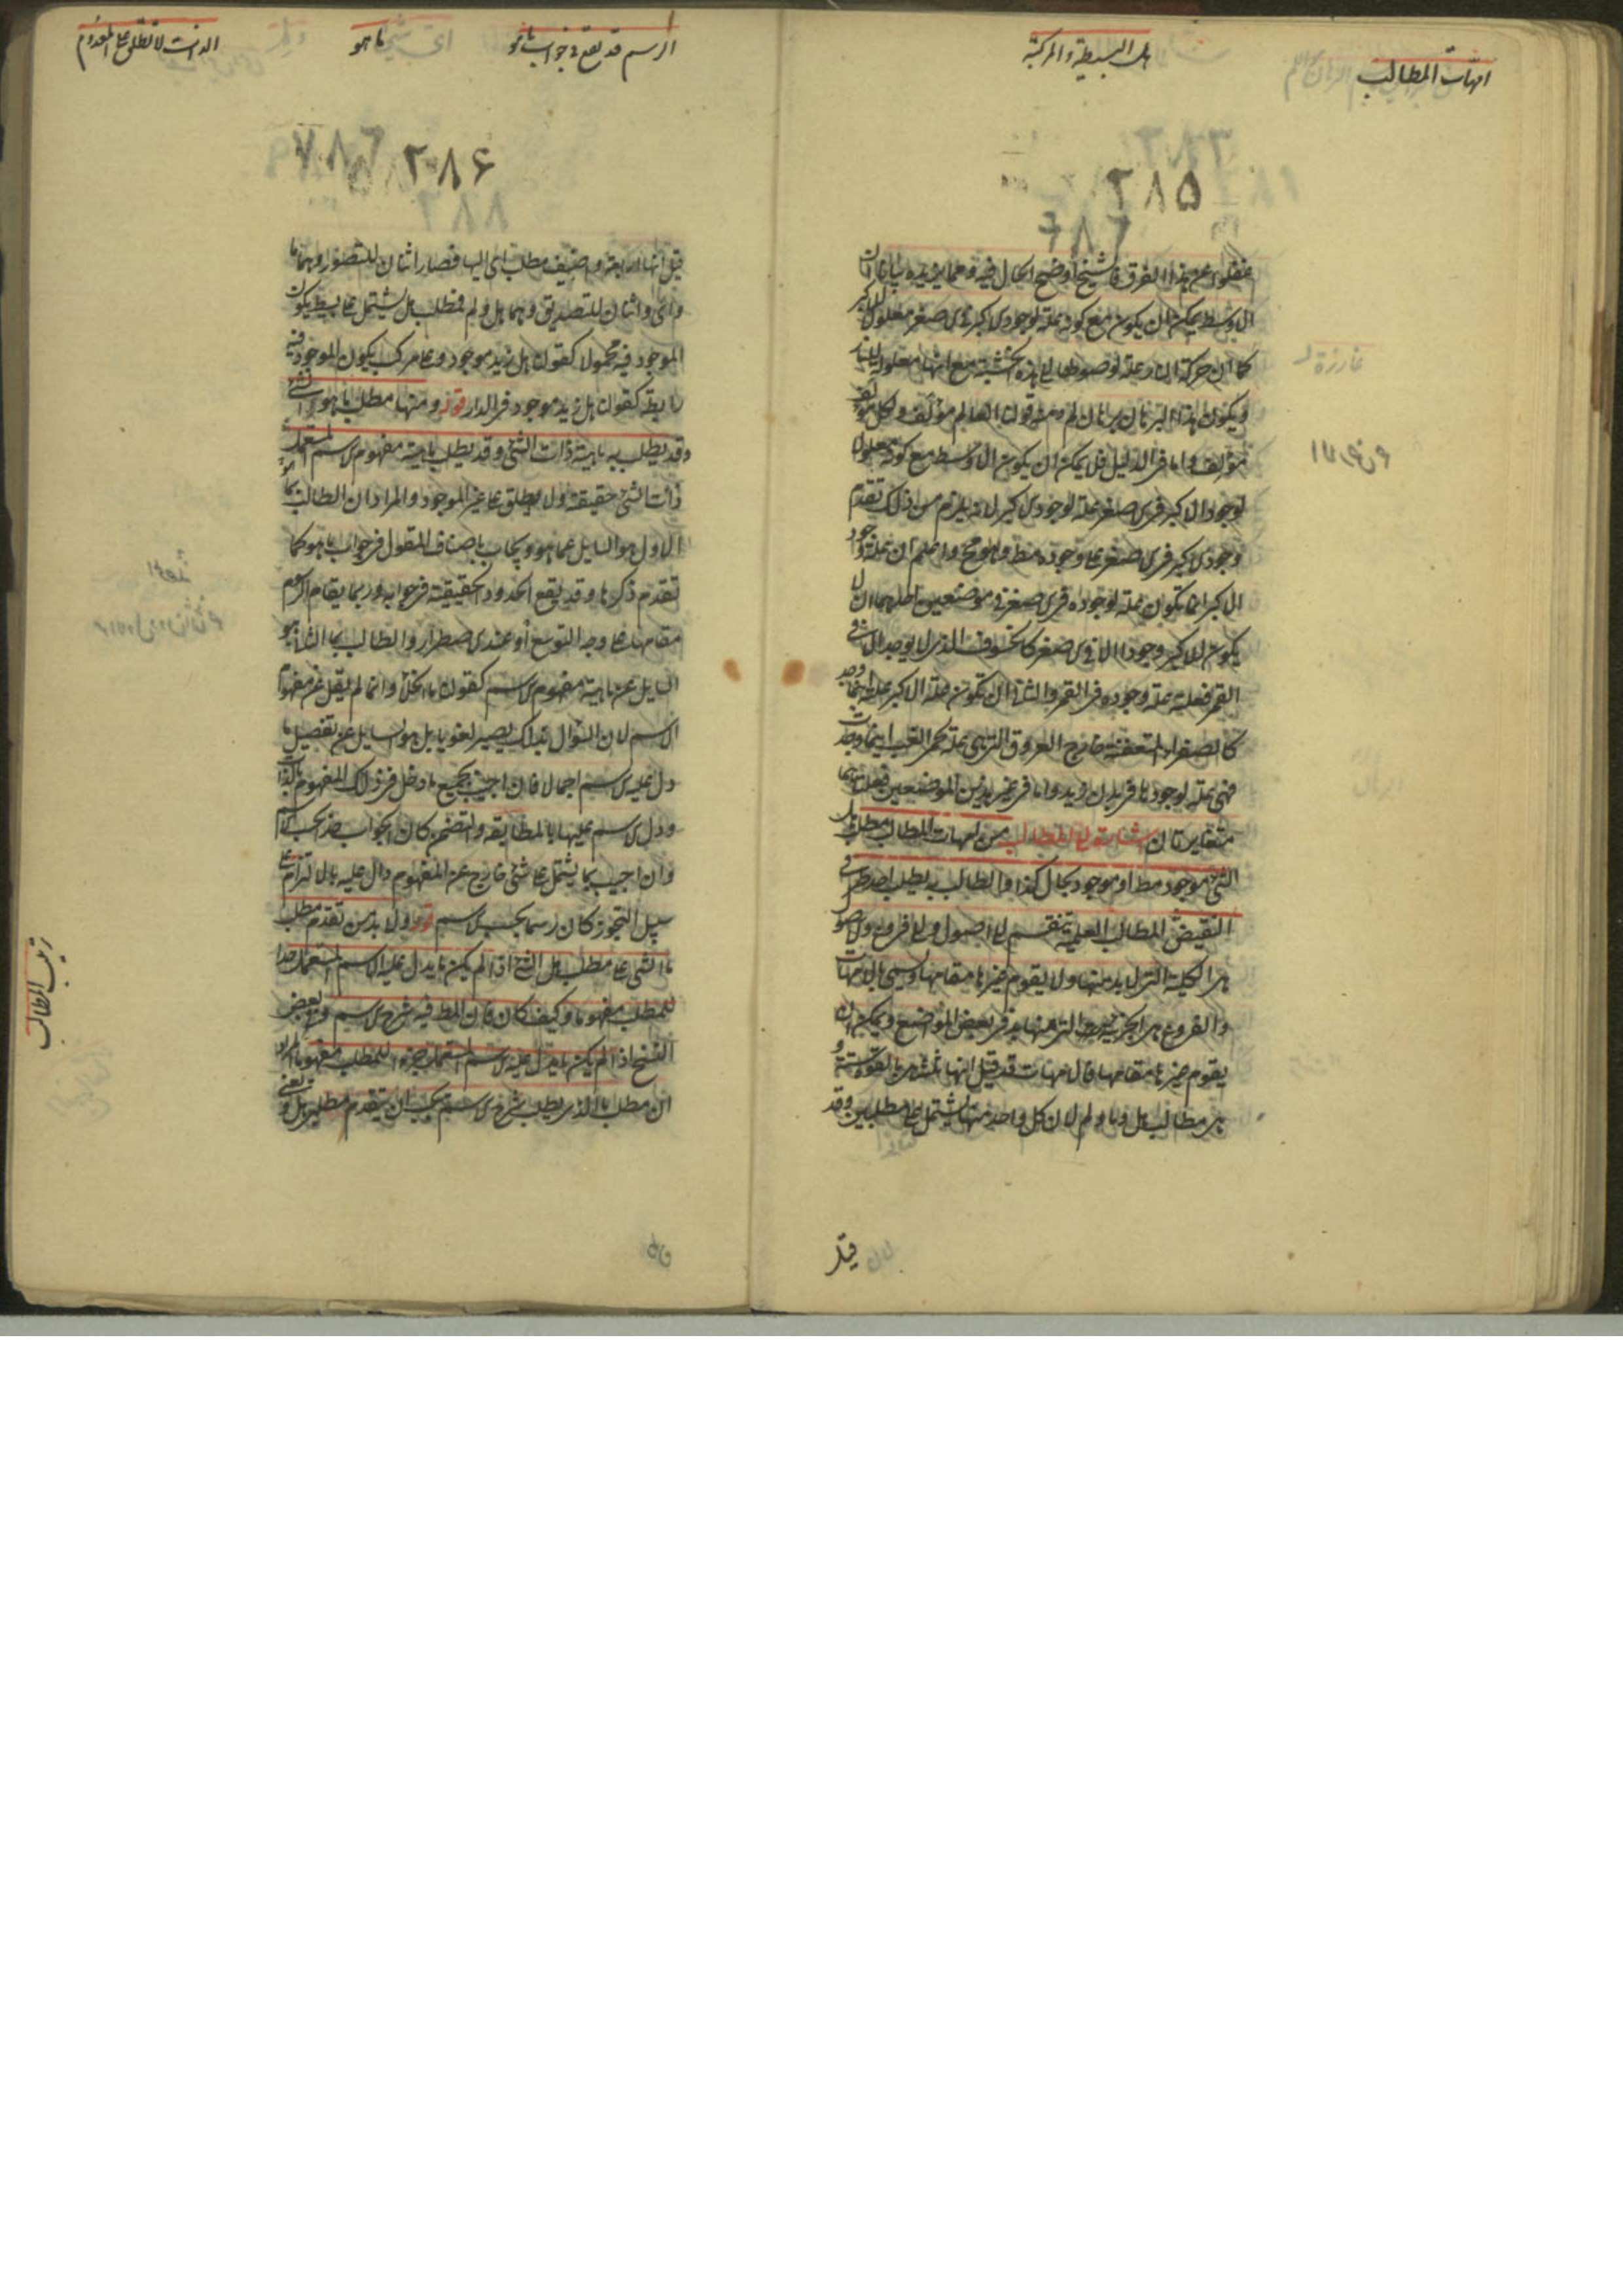 امهات المطالب
هل البسيطة والمركبة
٢٨٥
غفلوا عن هذا الفرق فالشيخ اوضح الحال فيه ومما يزيده بيانا ان
الاوسط يمكن ان يكون مع كونه علة لوجود الاكبر فى الاصغر معلولا للاكبر
كما ان حركة النار علة لوصولها الى هذه الخشبة مع انها معلولة للنار
ويكون هذا البرهان برهان لم ومنه قولنا العالم مؤلف ولكل مؤلف
مؤلف واما فى الدليل فلا يمكن ان يكون الاوسط مع كونه معلولا
لوجود الاكبر فى الاصغر علة لوجود الاكبر لانه يلزم من ذلك تقدم
وجود الاكبر فى الاصغر على وجوده مط وهو مح واعلم ان علة وجود
الاكبر انما يكون علة لوجوده فى الاصغر فى موضعين احلهما ان لا
يكون للاكبر وجود الا فى الاصغر كالخسوف الذى لا يوجد الا فى
القمر فعلته علة وجوده فى القمر والثانى ان تكون علة الاكبر علة اينما وجد
كالصفراء المتعفنة خارج العروق التى هى علة لحمى الغب اينما وجدت
فهى علة لوجودها فى بدن زيد واما فى غير هذين الموضعين فعلتاهما
متغايرتان اشارة الى المطالب من امهات المطالب مطلب هل
الشئ موجود مط او موجود بحال كذا والطالب به يطلب احد طرفى
النقيض المطالب العلمية تنقسم الى اصول والى فروع والاصول
هى الكلية التى لا بد منها ولا يقوم غيرها مقامها ويسمى بالامهات
والفروع هى الجزئية التى عنها بد فى بعض المواضع ويمكن ان
يقوم غيرها مقامها فالامهات قد قيل انها ثلثة هى بالقوة ستة و
هى مطالب هل وما ولم لان كل واحد منها يشتمل على مطلبين وقد
قيل
الرسم قد يقع فى جواب ما هو
ما هو
الذات لا تطلق على المعدوم
٢٨۶
قيل انها اربعة واضيف مطلب اى اليها فصار اثنان للتصور وهما ما
واى واثنان للتصديق وهما هل ولم فمطلب هل يشتمل على بسيط يكون
الموجود فيه محمولا كقولنا هل زيد موجود وعلى مركب يكون الموجود فيه
رابطة كقولنا هل زيد موجود فى الدار قوله ومنها مطلب ما هو الشئ
وقد يطلب به ماهية ذات الشئ وقد يطلب ماهية مفهوم الاسم المستعمل
ذات الشئ حقيقته ولا يطلق على غير الموجود والمراد ان الطالب بما
الاول هو السايل عما هو ويجاب باصناف المقول فى جواب ما هو كما
تقدم ذكرها وقد يقع الحدود الحقيقية فى جوابه وربما يقام الرسم
مقامها على وجه التوسع او عند الاضطرار والطالب بما الثانى هو
السايل عن ماهية مفهوم الاسم كقولنا ما الخلأ وانما لم يقل عن مفهوم
الاسم لان السؤال بذلك يصير لغويا بل هو السايل عن تفصيل ما
دل عليه الاسم اجمالا فان اجيب بجميع ما دخل فى ذلك المفهوم بالذات
ودل الاسم عليها بالمطابقة والتضمن كان الجواب حدا بحسب الاسم
وان اجيب بما يشتمل على شئ خارج عن المفهوم دال عليه بالالتزام على
سبيل التجوز كان رسما بحسب الاسم قوله ولا بد من تقدم مطلب
ما الشئ على مطلب هل الشئ اذا لم يكن ما يدل عليه الاسم المستعمل حدا
للمطلب مفهوما وكيف كان فان المط فيه شرح الاسم وبعض
النسخ اذا لم يكن ما يدل عليه الاسم المستعمل جزءا للمطلب مفهوما المراد
ان مطلب ما الذى يطلب شرح الاسم يجب ان يتقدم مطلبى هل و
ترتيب المطالب